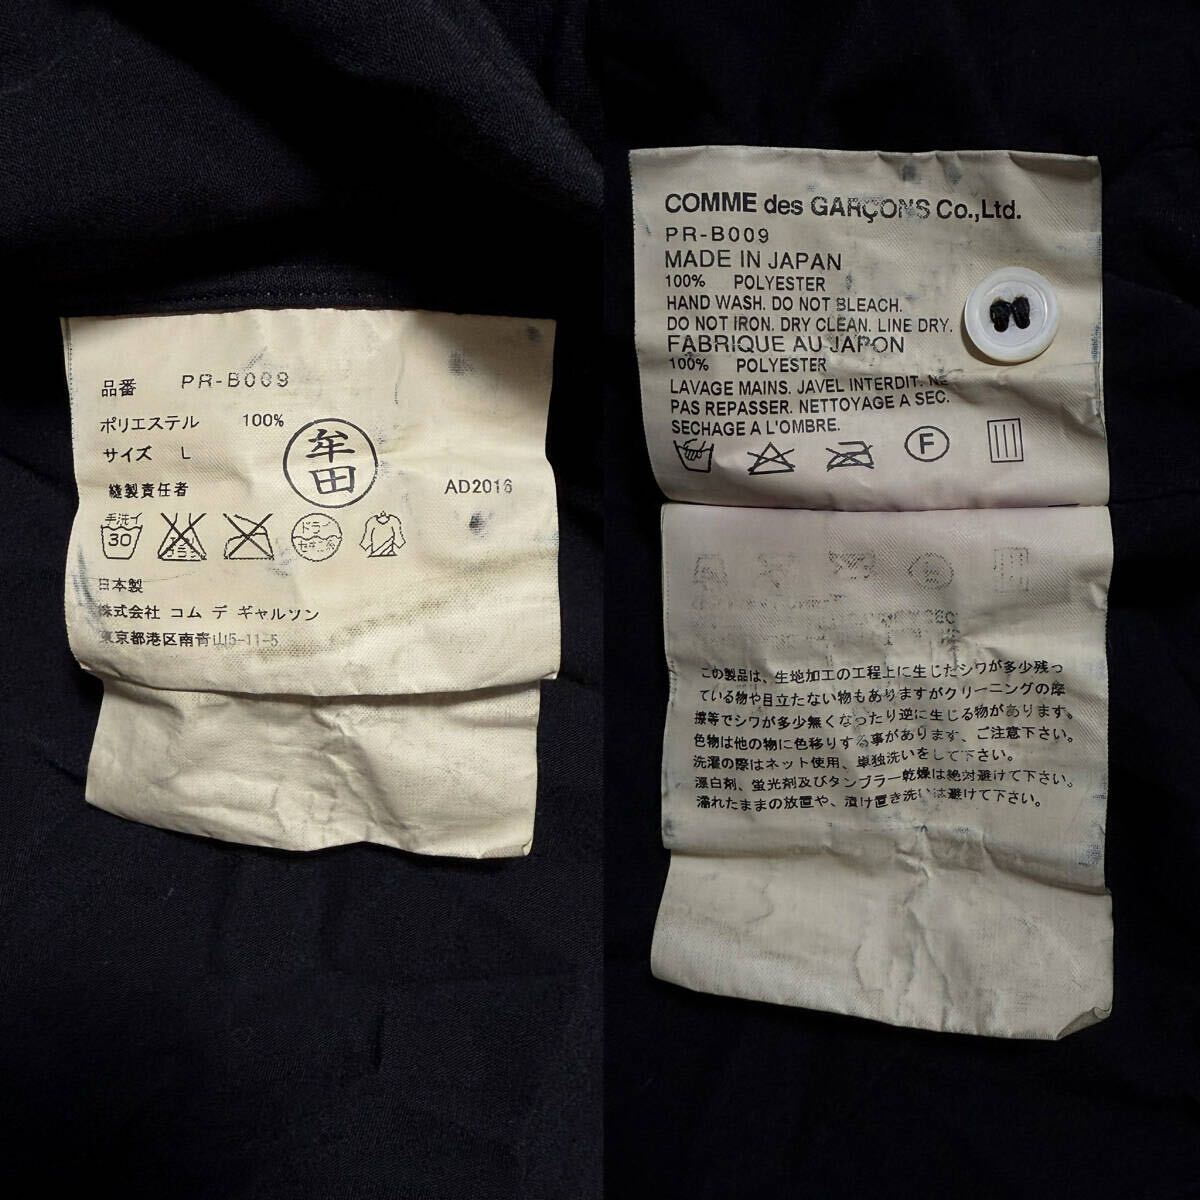 品番 PR-B009
ポリエステル 100%
サイズ L
牟田
縫製責任者 AD2016
手洗イ
30
ドライ
セキユ系
日本製
株式会社 コム デ ギャルソン
東京都港区南青山5-11-5
COMME des GARÇONS Co.,Ltd.
PR-B009
MADE IN JAPAN
100% POLYESTER
HAND WASH. DO NOT BLEACH.
DO NOT IRON. DRY CLEAN. LINE DRY.
FABRIQUE AU JAPON
100% POLYESTER
LAVAGE MAINS. JAVEL INTERDIT. NE
PAS REPASSER. NETTOYAGE A SEC.
SECHAGE A L'OMBRE.
F
この製品は、生地加工の工程上に生じたシワが多少残っ
ている物や目立たない物もありますがクリーニングの摩
擦等でシワが多少無くなったり逆に生じる物があります。
色物は他の物に色移りする事があります、ご注意下さい。
洗濯の際はネット使用、単独洗いをして下さい。
漂白剤、蛍光剤及びタンブラー乾燥は絶対避けて下さい。
濡れたままの放置や、漬け置き洗いは避けて下さい。